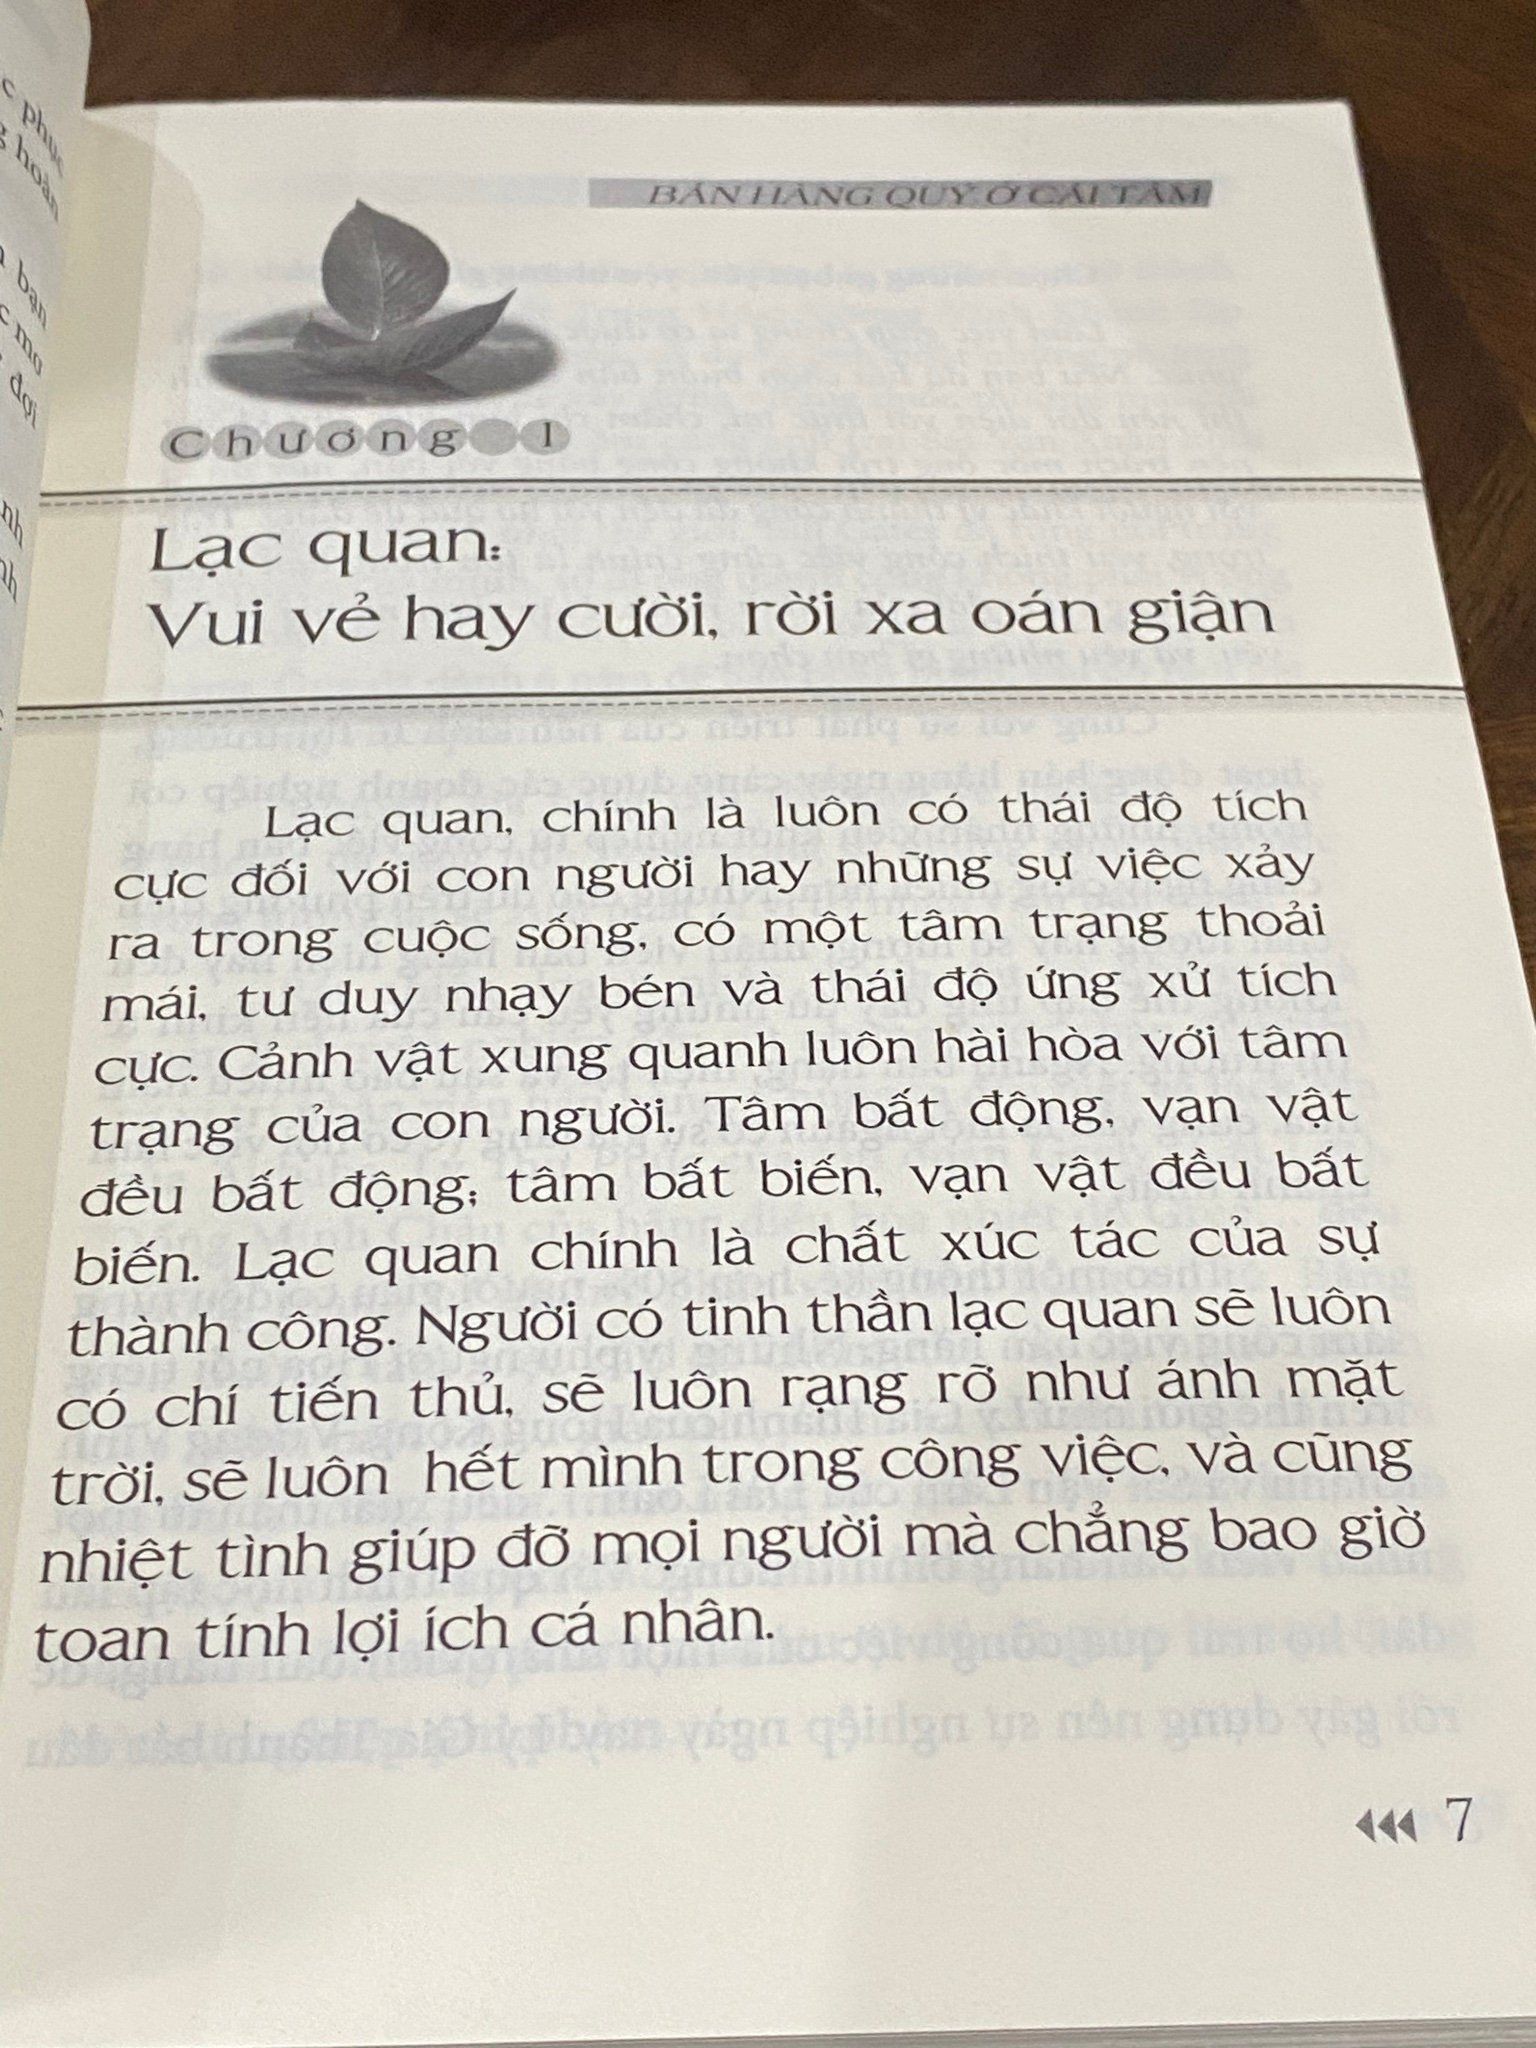 c phục
g hoàn
bạn
c mơ
đợi
nh
nh
BÁN HÀNG QUÝ Ở CÁI TÂM
Chương 1
Lạc quan:
Vui vẻ hay cười, rời xa oán giận
Lạc quan, chính là luôn có thái độ tích
cực đối với con người hay những sự việc xảy
ra trong cuộc sống, có một tâm trạng thoải
mái, tư duy nhạy bén và thái độ ứng xử tích
cực. Cảnh vật xung quanh luôn hài hòa với tâm
trạng của con người. Tâm bất động, vạn vật
đều bất động; tâm bất biến, vạn vật đều bất
biến. Lạc quan chính là chất xúc tác của sự
thành công. Người có tinh thần lạc quan sẽ luôn
có chí tiến thủ, sẽ luôn rạng rỡ như ánh mặt
trời, sẽ luôn hết mình trong công việc, và cũng
nhiệt tình giúp đỡ mọi người mà chẳng bao giờ
toan tính lợi ích cá nhân.
7